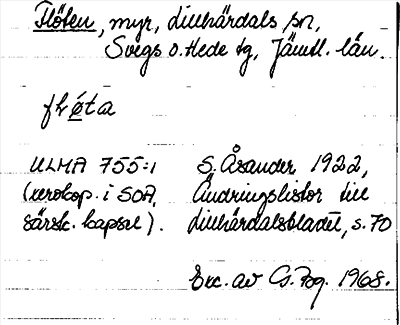 Flöten, myr, Lillhärdals sn,
Svegs o. Hede tg, Jämtl. län.
fløta
ULMA 755:1 S. Åsander 1922,
(xerokop. i SOA, Ändringslistor till
särsk. kapsel). Lillhärdalsbladet, s. 70
Exc. av G. Fog. 1968.